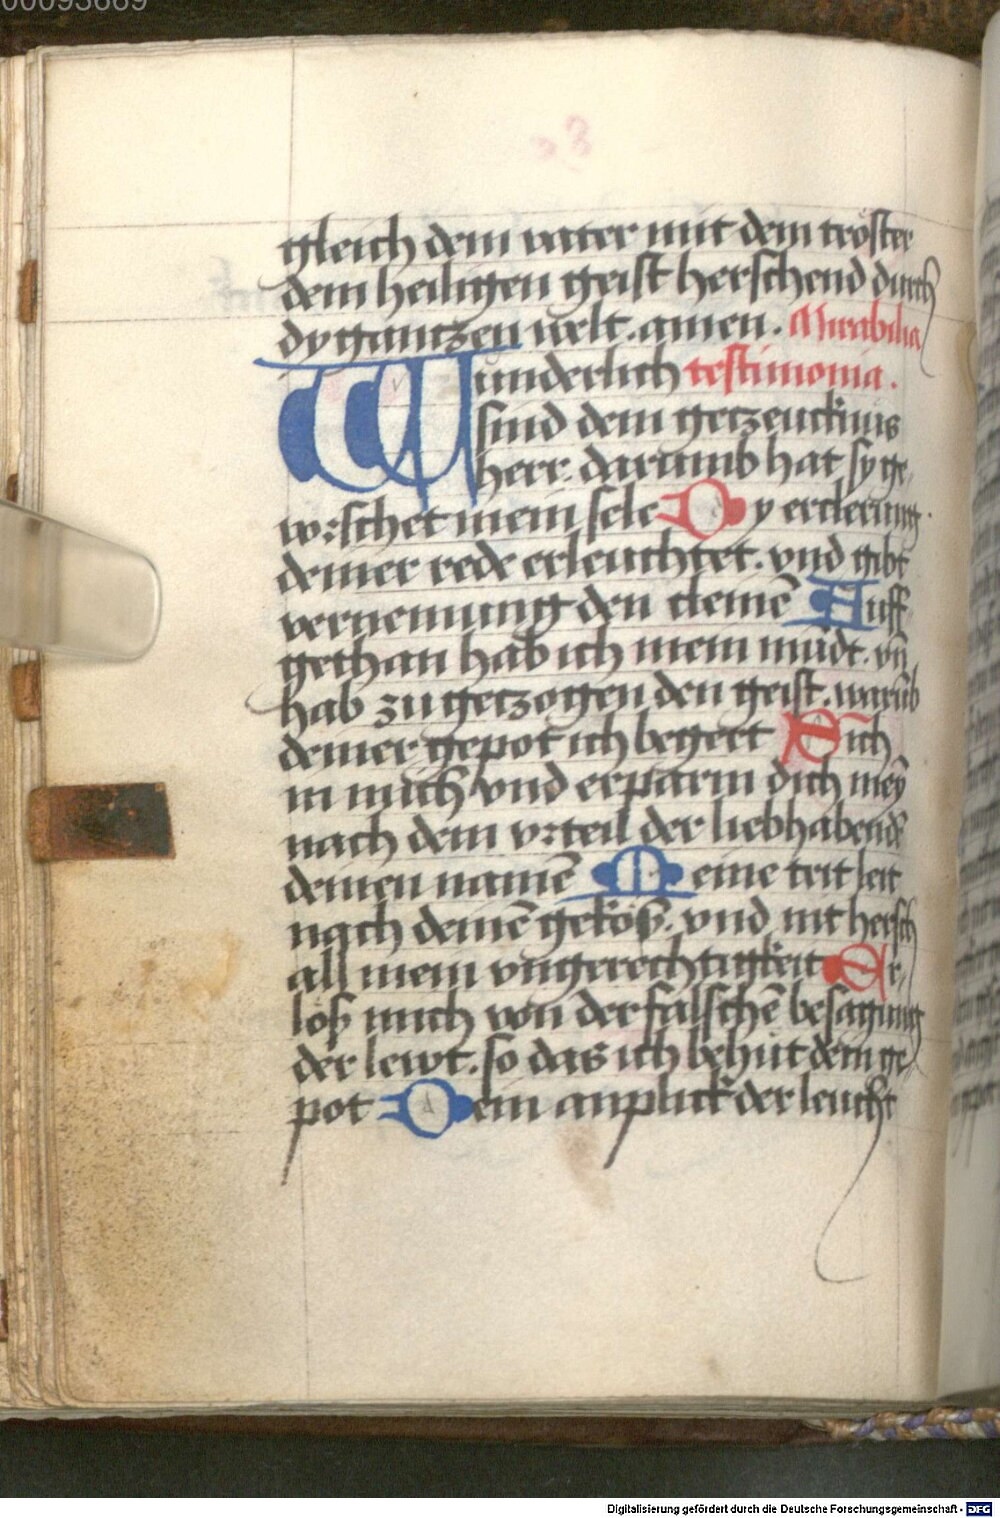 00093669
gleich dem vater mit dem tröster
dem heiligen geist herschend durch
dy gantzen welt. amen. Mirabilia
Wunderlich testimonia.
sind dein getzeucknus
herr. darumb hat sy ge
worschet mein sele Dy erclerung
deiner rede erleuchtet. vnd gibt
vernemung den cleinē Auff
gethan hab ich mein mūdt. vn̄
hab zu getzogen den geist. warūb
deiner gepot ich begert Sich
in mich vnd erparm dich meȳ
nach dem vrteil der liebhabendē
deinen namē Meine trit leit
nach deinē gekōß. vnd nit hersch
all mein vngerechtigkeit Er
löß mich von der falschē besagung
der lewt. so das ich behüt dein ge
pot Dein anplick der leucht
Digitalisierung gefördert durch die Deutsche Forschungsgemeinschaft - DFG